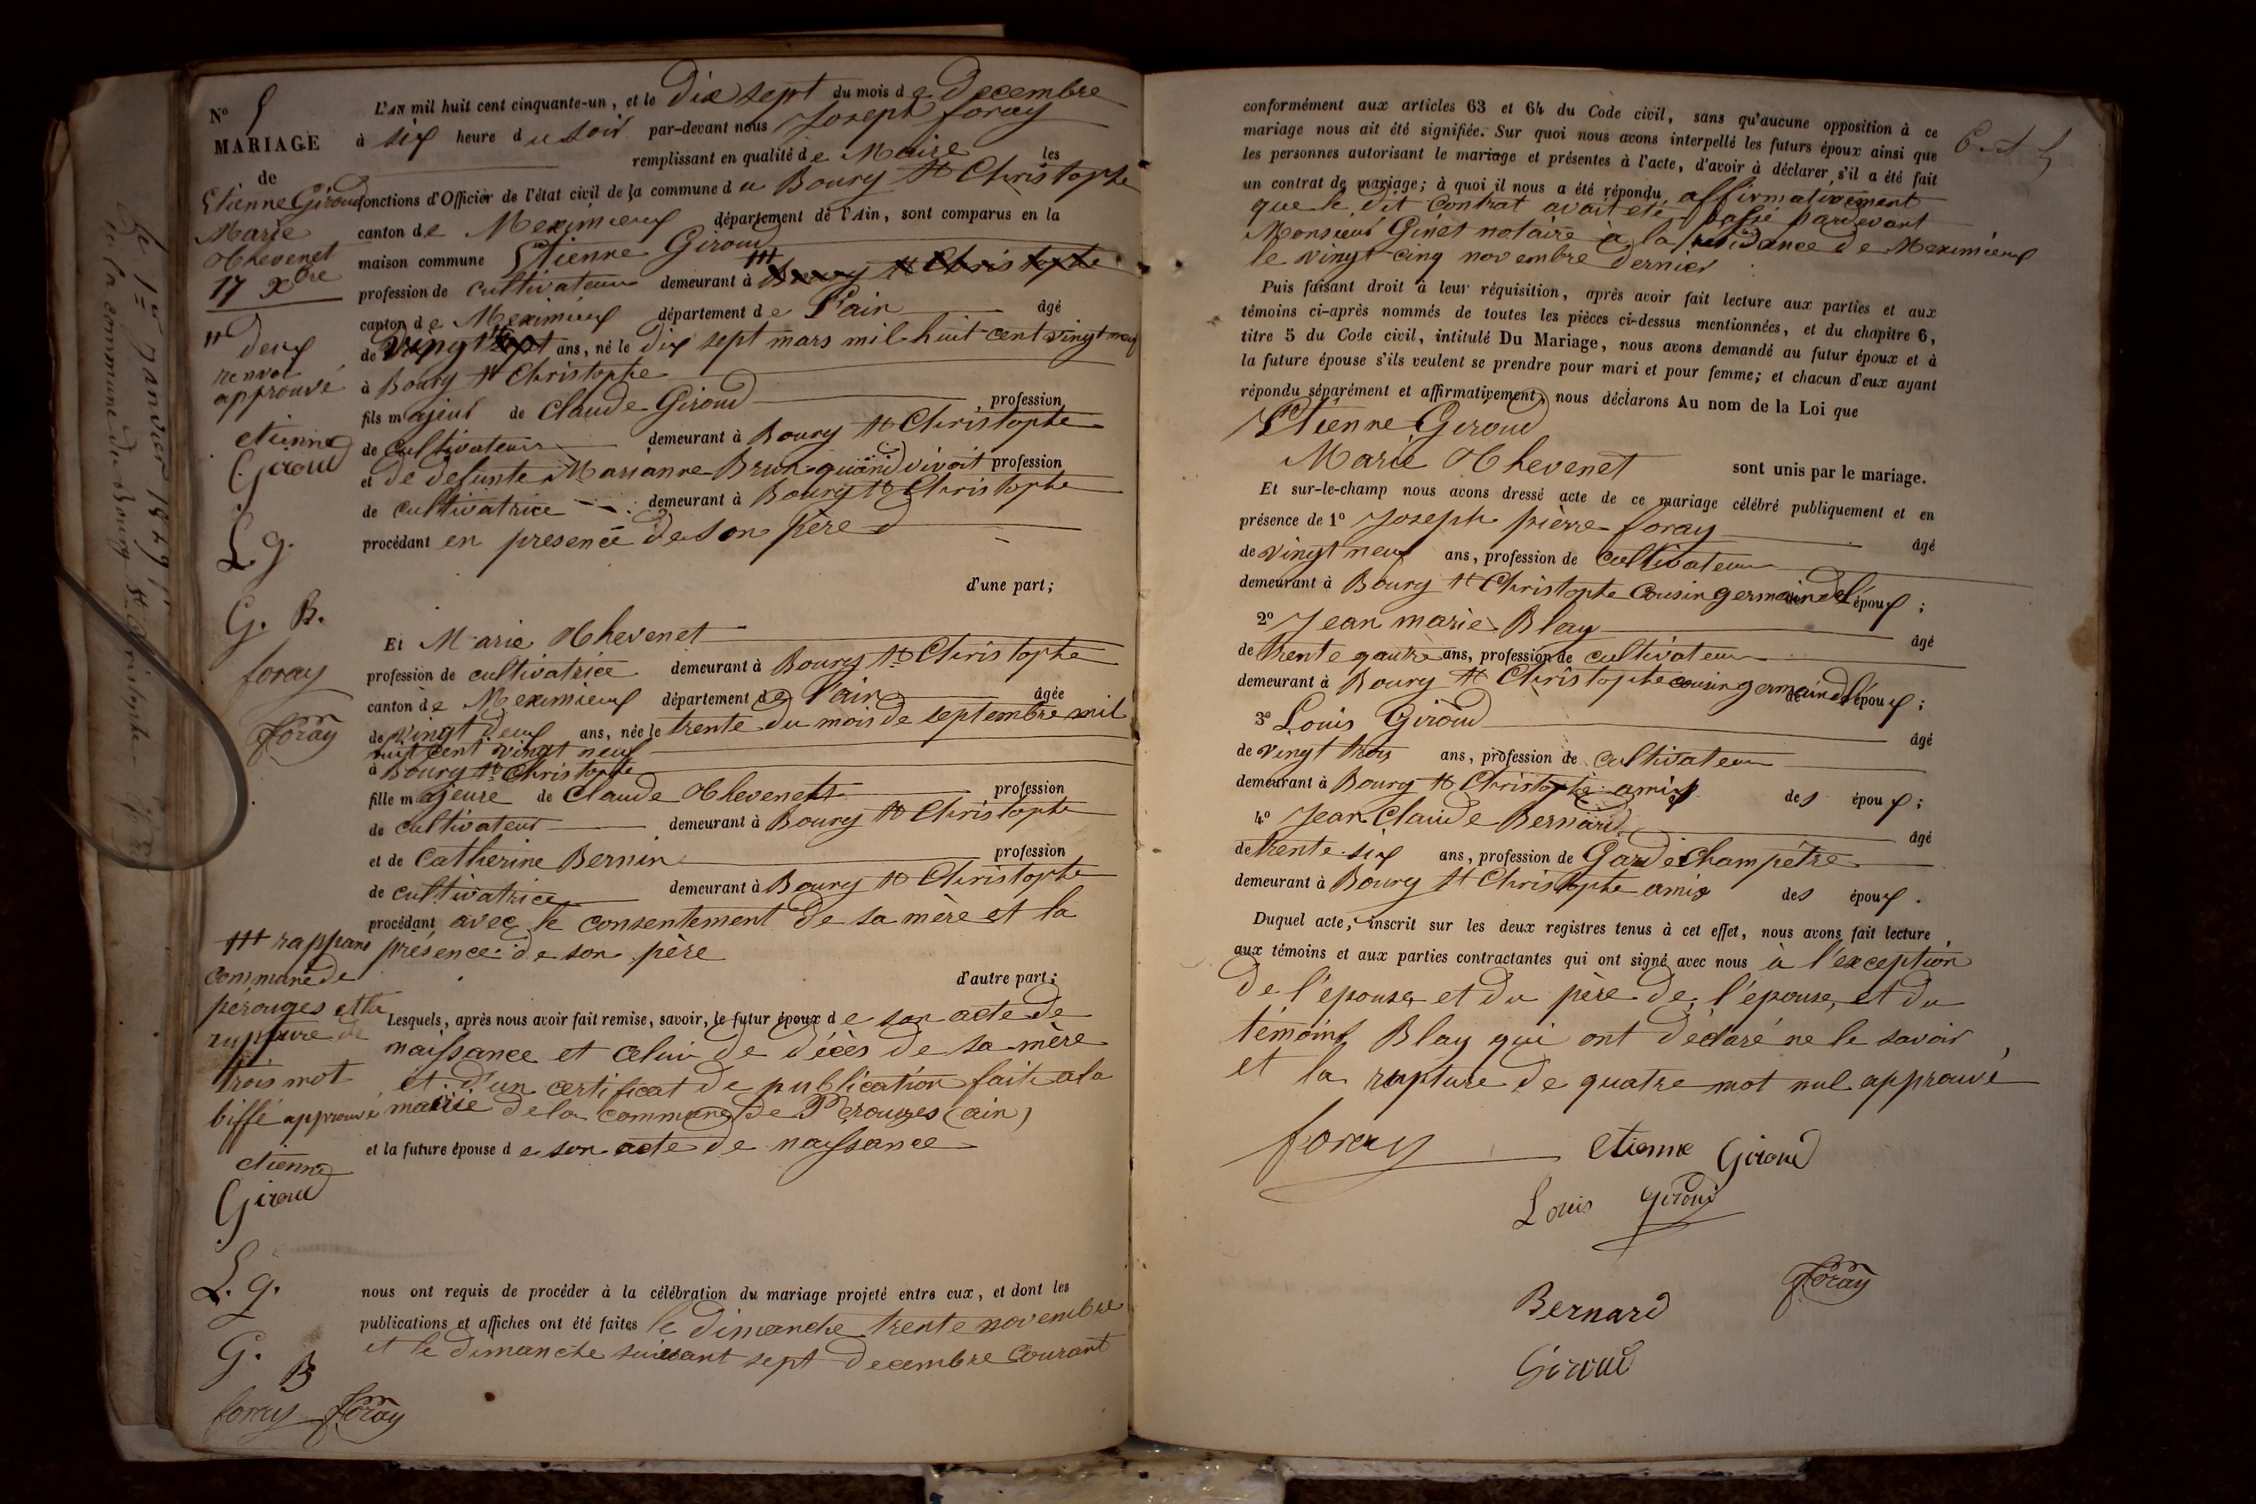 N° 5
MARIAGE
de
Etienne Giroud
Marie
Thevenet
17 Xbre
deux
renvoi
approuvé
etienne
Giroud
L. g.
G. B.
foray
foray
L'AN mil huit cent cinquante-un, et le Dix sept du mois de Decembre
à six heure du soir par-devant nous Joseph foray
remplissant en qualité de Maire les
fonctions d'Officier de l'état civil de la commune du Bourg St Christophe
canton de Meximieux département de l'Ain, sont comparus en la
maison commune Etienne Giroud
profession de cultivateur demeurant à Bourg St Christophe
canton de Meximieux département de l'ain âgé
de vingt ans, né le dix sept mars mil huit cent vingt neuf
à Bourg St Christophe
fils majeur de Claude Giroud profession
de cultivateur demeurant à Bourg St Christophe
et de defunte Marianne Brun quand vivoit profession
de cultivatrice demeurant à Bourg St Christophe
procédant en presence de son père
d'une part;
Et Marie Thevenet
profession de cultivatrice demeurant à Bourg St Christophe
canton de Meximieux département de l'ain âgée
de vingt deux ans, née le trente du mois de septembre mil
huit cent vingt neuf
à Bourg St Christophe
fille majeure de Claude Thevenet profession
de cultivateur demeurant à Bourg St Christophe
et de Catherine Bernin profession
de cultivatrice demeurant à Bourg St Christophe
procédant avec le consentement de sa mère et la
présence de son père
d'autre part;
commune de
pérouges et la
rupture de
trois mot
biffé approuvé
etienne
Giroud
L. g.
G. B
foray foray
Lesquels, après nous avoir fait remise, savoir, le futur époux de son acte de
naissance et celui de décès de sa mère
et d'un certificat de publication faite a la
mairie de la commune de Pérouges (ain)
et la future épouse de son acte de naissance
nous ont requis de procéder à la célébration du mariage projeté entre eux, et dont les
publications et affiches ont été faites le dimanche trente novembre
et le dimanche suivant sept decembre courant
conformément aux articles 63 et 64 du Code civil, sans qu'aucune opposition à ce
mariage nous ait été signifiée. Sur quoi nous avons interpellé les futurs époux ainsi que
les personnes autorisant le mariage et présentes à l'acte, d'avoir à déclarer s'il a été fait
un contrat de mariage; à quoi il nous a été répondu affirmativement
que le dit contrat avait été passé pardevant
Monsieur Ginet notaire à la résidance de Meximieux
le vingt cinq novembre dernier
Puis faisant droit à leur réquisition, après avoir fait lecture aux parties et aux
témoins ci-après nommés de toutes les pièces ci-dessus mentionnées, et du chapitre 6,
titre 5 du Code civil, intitulé Du Mariage, nous avons demandé au futur époux et à
la future épouse s'ils veulent se prendre pour mari et pour femme; et chacun d'eux ayant
répondu séparément et affirmativement, nous déclarons Au nom de la Loi que
Etienne Giroud
Marie Thevenet sont unis par le mariage.
Et sur-le-champ nous avons dressé acte de ce mariage célébré publiquement et en
présence de 1° Joseph pierre foray âgé
de vingt neuf ans, profession de cultivateur
demeurant à Bourg St Christophe cousin germain de l'époux;
2° Jean marie Blay âgé
de trente quatre ans, profession de cultivateur
demeurant à Bourg St Christophe cousin germain de l'époux;
3° Louis Giroud âgé
de vingt trois ans, profession de cultivateur
demeurant à Bourg St Christophe amis des époux;
4° Jean Claude Bernard âgé
de trente six ans, profession de Garde Champêtre
demeurant à Bourg St Christophe amis des époux.
Duquel acte, inscrit sur les deux registres tenus à cet effet, nous avons fait lecture
aux témoins et aux parties contractantes qui ont signé avec nous à l'exception
de l'épouse et du père de l'épouse, et du
témoins Blay qui ont déclaré ne le savoir
et la rupture de quatre mot nul approuvé
foray etienne Giroud
Louis giroud
foray
Bernard
Giroud